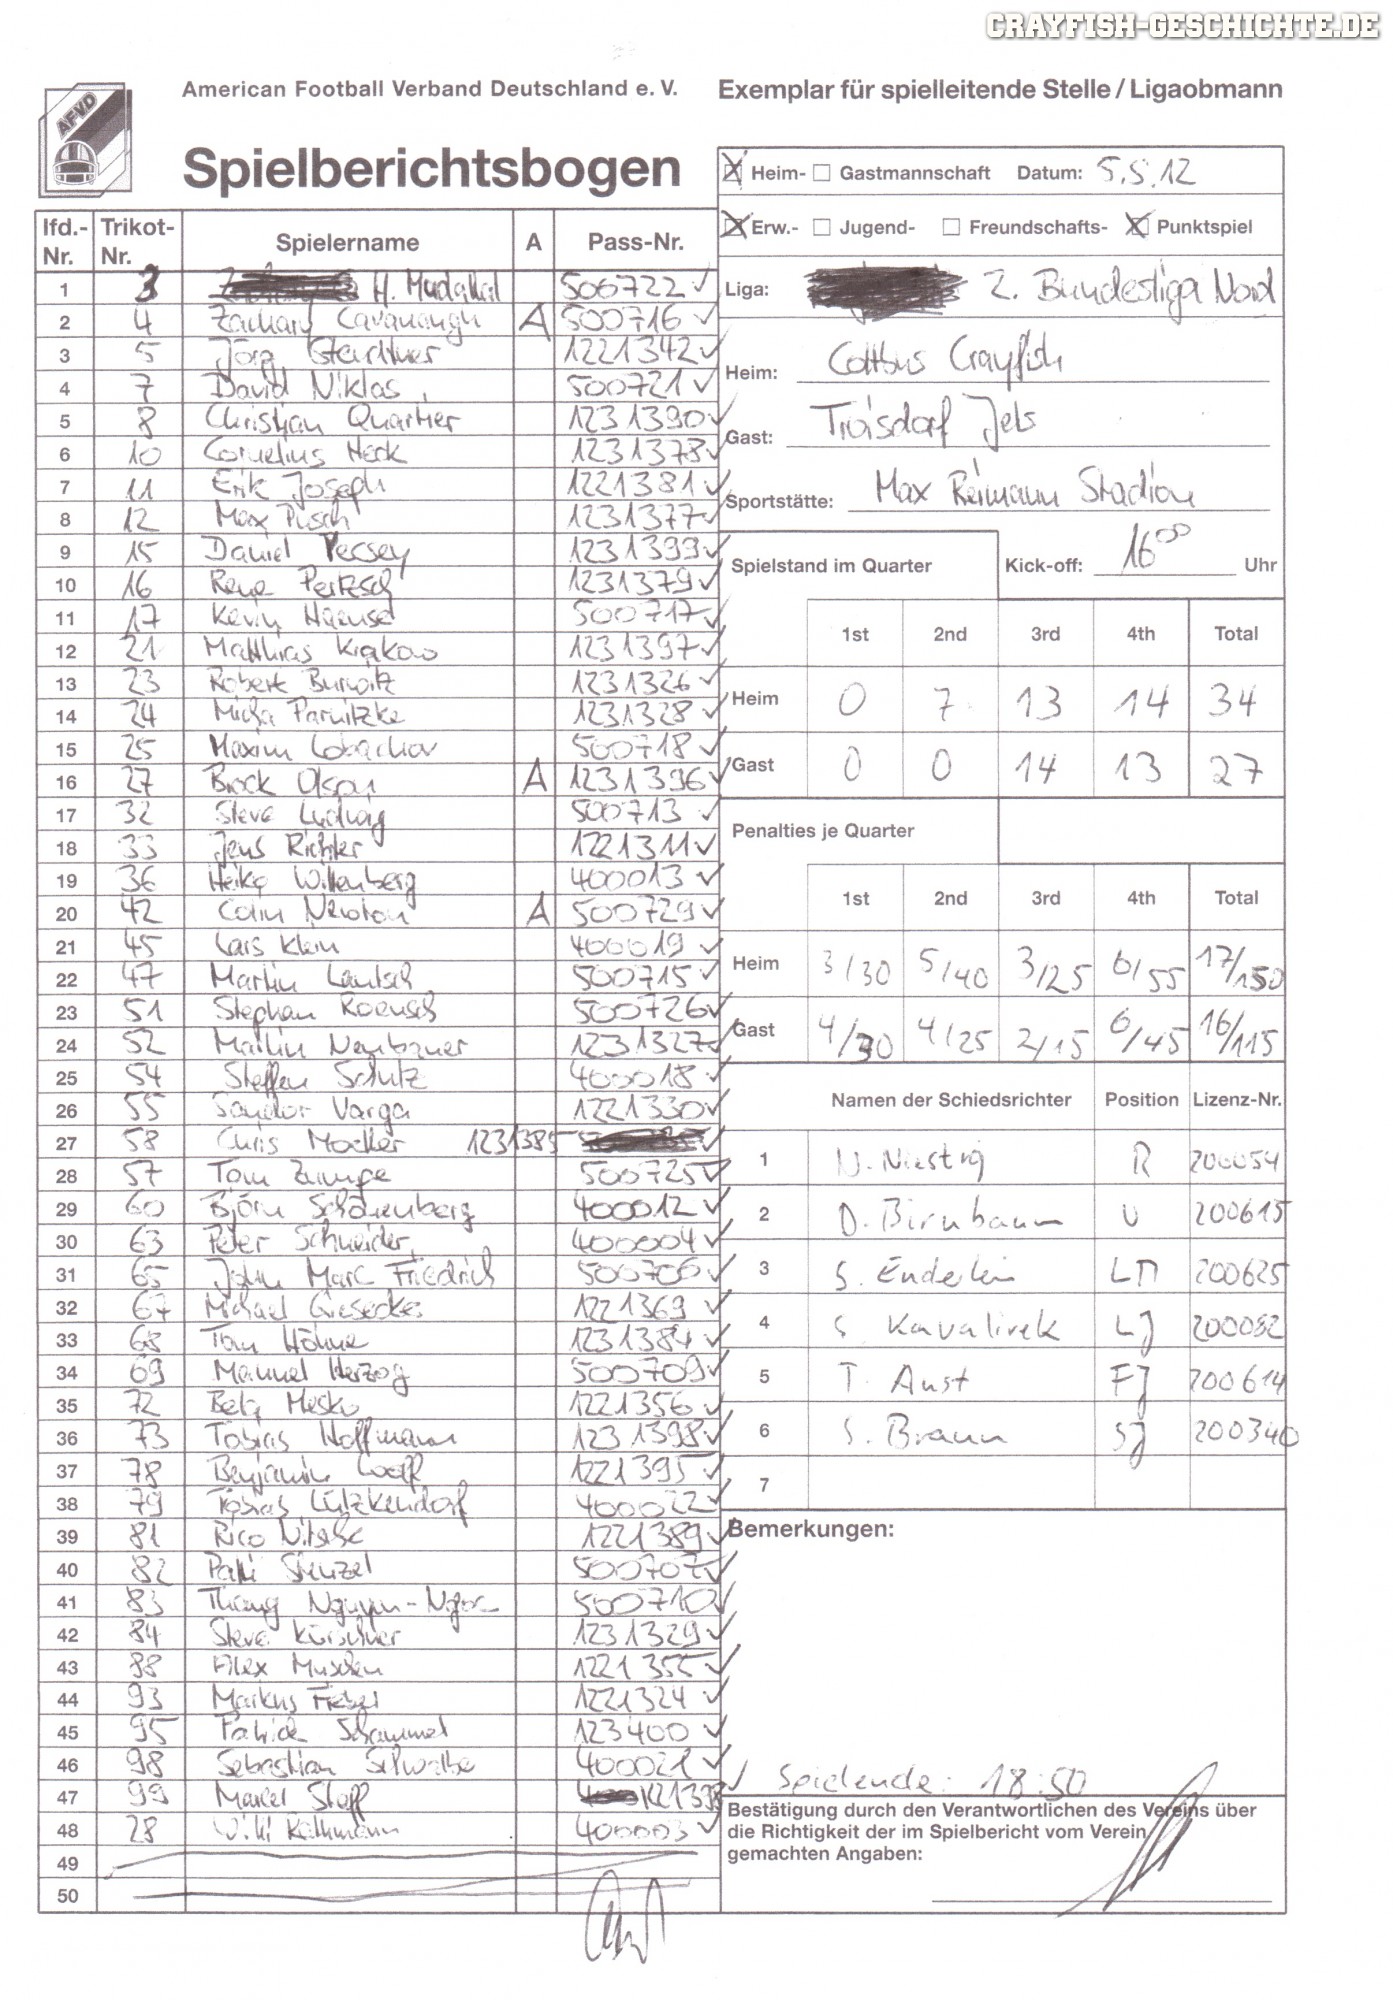 CRAYFISH-GESCHICHTE.DE
American Football Verband Deutschland e. V.
Exemplar für spielleitende Stelle / Ligaobmann
AFVD
Spielberichtsbogen
Heim- Gastmannschaft Datum: 5.5.12
Erw.- Jugend- Freundschafts- Punktspiel
Liga: 2. Bundesliga Nord
Heim: Cottbus Crayfish
Gast: Troisdorf Jets
Sportstätte: Max Reimann Stadion
Spielstand im Quarter Kick-off: 16⁰⁰ Uhr
1st 2nd 3rd 4th Total
Heim 0 7 13 14 34
Gast 0 0 14 13 27
Penalties je Quarter
1st 2nd 3rd 4th Total
Heim 3/30 5/40 3/25 6/55 17/150
Gast 4/30 4/25 2/15 6/45 16/115
Namen der Schiedsrichter Position Lizenz-Nr.
1 N. R 200054
2 D. Birnbaum U 200615
3 S. Enderlein LM 200625
4 S. Kavalirek LJ 200082
5 T. Aust FJ 200614
6 S. Braun SJ 200340
7
Bemerkungen:
Spielende: 18:50
Bestätigung durch den Verantwortlichen des Vereins über
die Richtigkeit der im Spielbericht vom Verein
gemachten Angaben:
lfd.-Nr. Trikot-Nr. Spielername A Pass-Nr.
1 3 H. 500722
2 4 Zachary Cavanaugh A 500716
3 5 Jörg 1221342
4 7 David Niklas 500721
5 8 Christian Quartier 1231390
6 10 Cornelius Heck 1231378
7 11 Erik Joseph 1221381
8 12 Max Pusch 1231377
9 15 Daniel Vecsey 1231399
10 16 Rene Pertzsch 1231379
11 17 Kevin Haensel 500717
12 21 Matthias Krakow 1231397
13 23 Robert Burwitz 1231326
14 24 Micha Parnitzke 1231328
15 25 Maxim Lobachov 500718
16 27 Brock Olson A 1231396
17 32 Steve Ludwig 500713
18 33 Jens Richter 1221311
19 36 Heiko Wittenberg 400013
20 42 Colin Newton A 500729
21 45 Lars Klein 400019
22 47 Martin Lautsch 500715
23 51 Stephan Roensch 500726
24 52 Martin Neubauer 1231327
25 54 Steffen Schulz 400018
26 55 Sandor Varga 1221330
27 58 Chris Mocker 1231385
28 57 Tom Zumpe 500725
29 60 Björn Schönenberg 400012
30 63 Peter Schneider 400004
31 65 John Marc Friedrich 500706
32 67 Michael Giesecke 1221369
33 68 Tom Höhne 1231384
34 69 Manuel Herzog 500709
35 72 Bela Mesko 1221356
36 73 Tobias Hoffmann 1231398
37 78 Benjamin 1221395
38 79 Tobias Lützkendorf 400022
39 81 Rico Nitschke 1221389
40 82 Stenzel 500707
41 83 Nguyen-Ngoc 500710
42 84 Steve Kürschner 1231329
43 88 Alex 1221355
44 93 Markus Fiebel 1221324
45 95 Patrick Schammel 123400
46 98 Sebastian Schwalbe 400021
47 99 Marcel
48 28 Willi Rathmann 400003
49
50